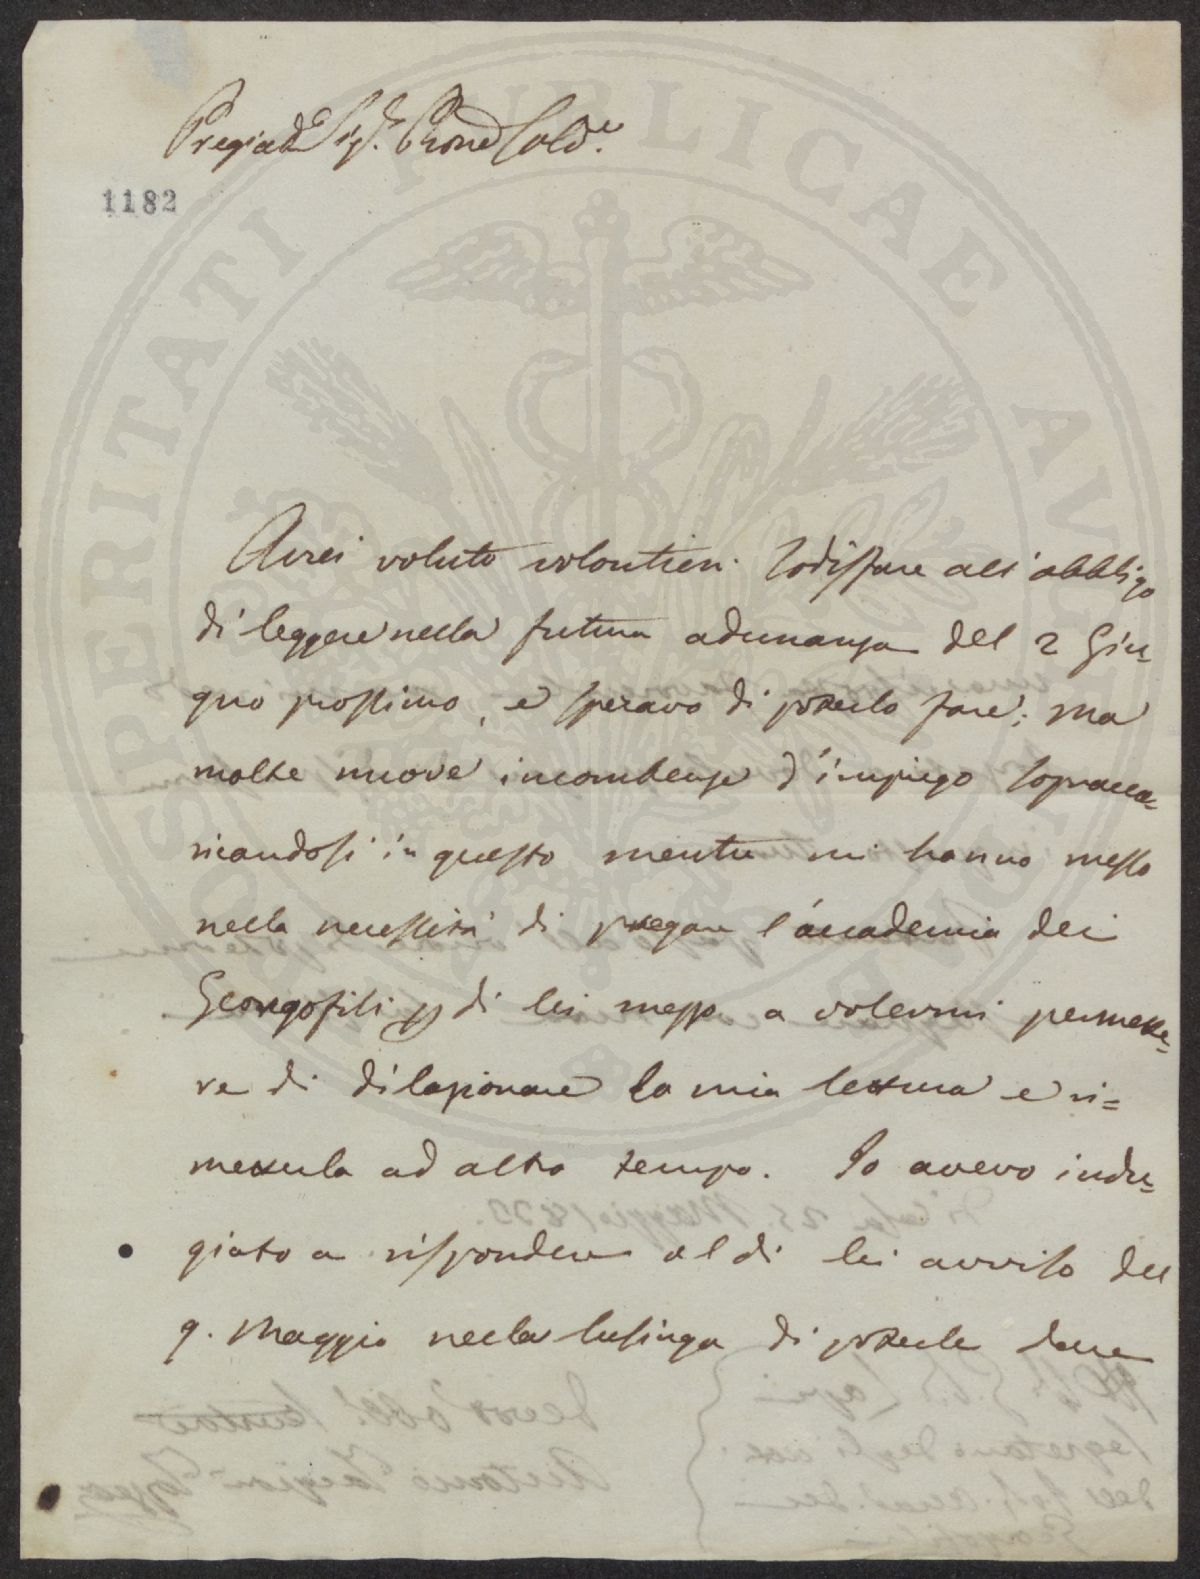 Pregiat.e Sig.r Prone Col.e
1182
Avrei voluto volontieri sodisfare all'obbligo
di leggere nella futura adunanza del 2 Giu-
gno prossimo, e speravo di poterlo fare; ma
molte nuove incombenze d'impiego sopracca-
ricandosi in questo mentre mi hanno messo
nella necessità di pregare l'accademia dei
Georgofili p di lei mezzo a volermi permette-
re di dilazionare la mia lettura e ri=
metterla ad altro tempo. Io avevo indu-
giato a rispondere al di lei avviso del
9. Maggio nella lusinga di poterle dare
PROSPERITATI PUBLICAE AUGENDAE